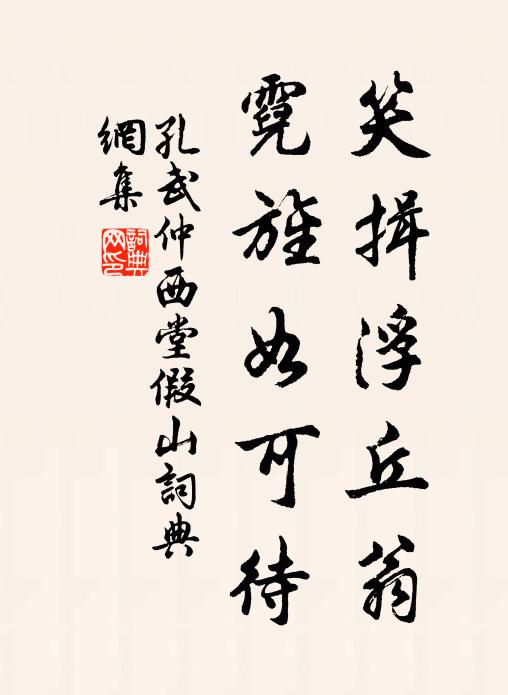 笑揖浮丘翁
霓旌如可待
孔武仲西堂假山詞典
網集
詞典
网印